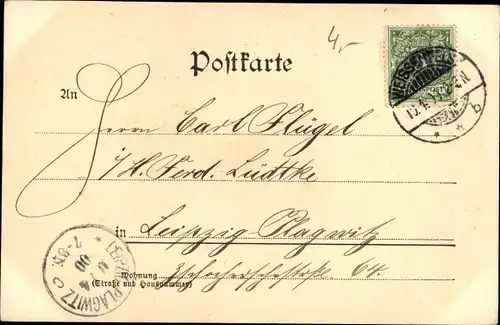 4,-
Postkarte
An
Herrn Carl Flügel
i/H. Ferd. Lüdtke
in Leipzig Plagwitz
Wohnung
(Straße und Hausnummer)
64.
LEIPZIG-PLAGWITZ
00
7-8N.